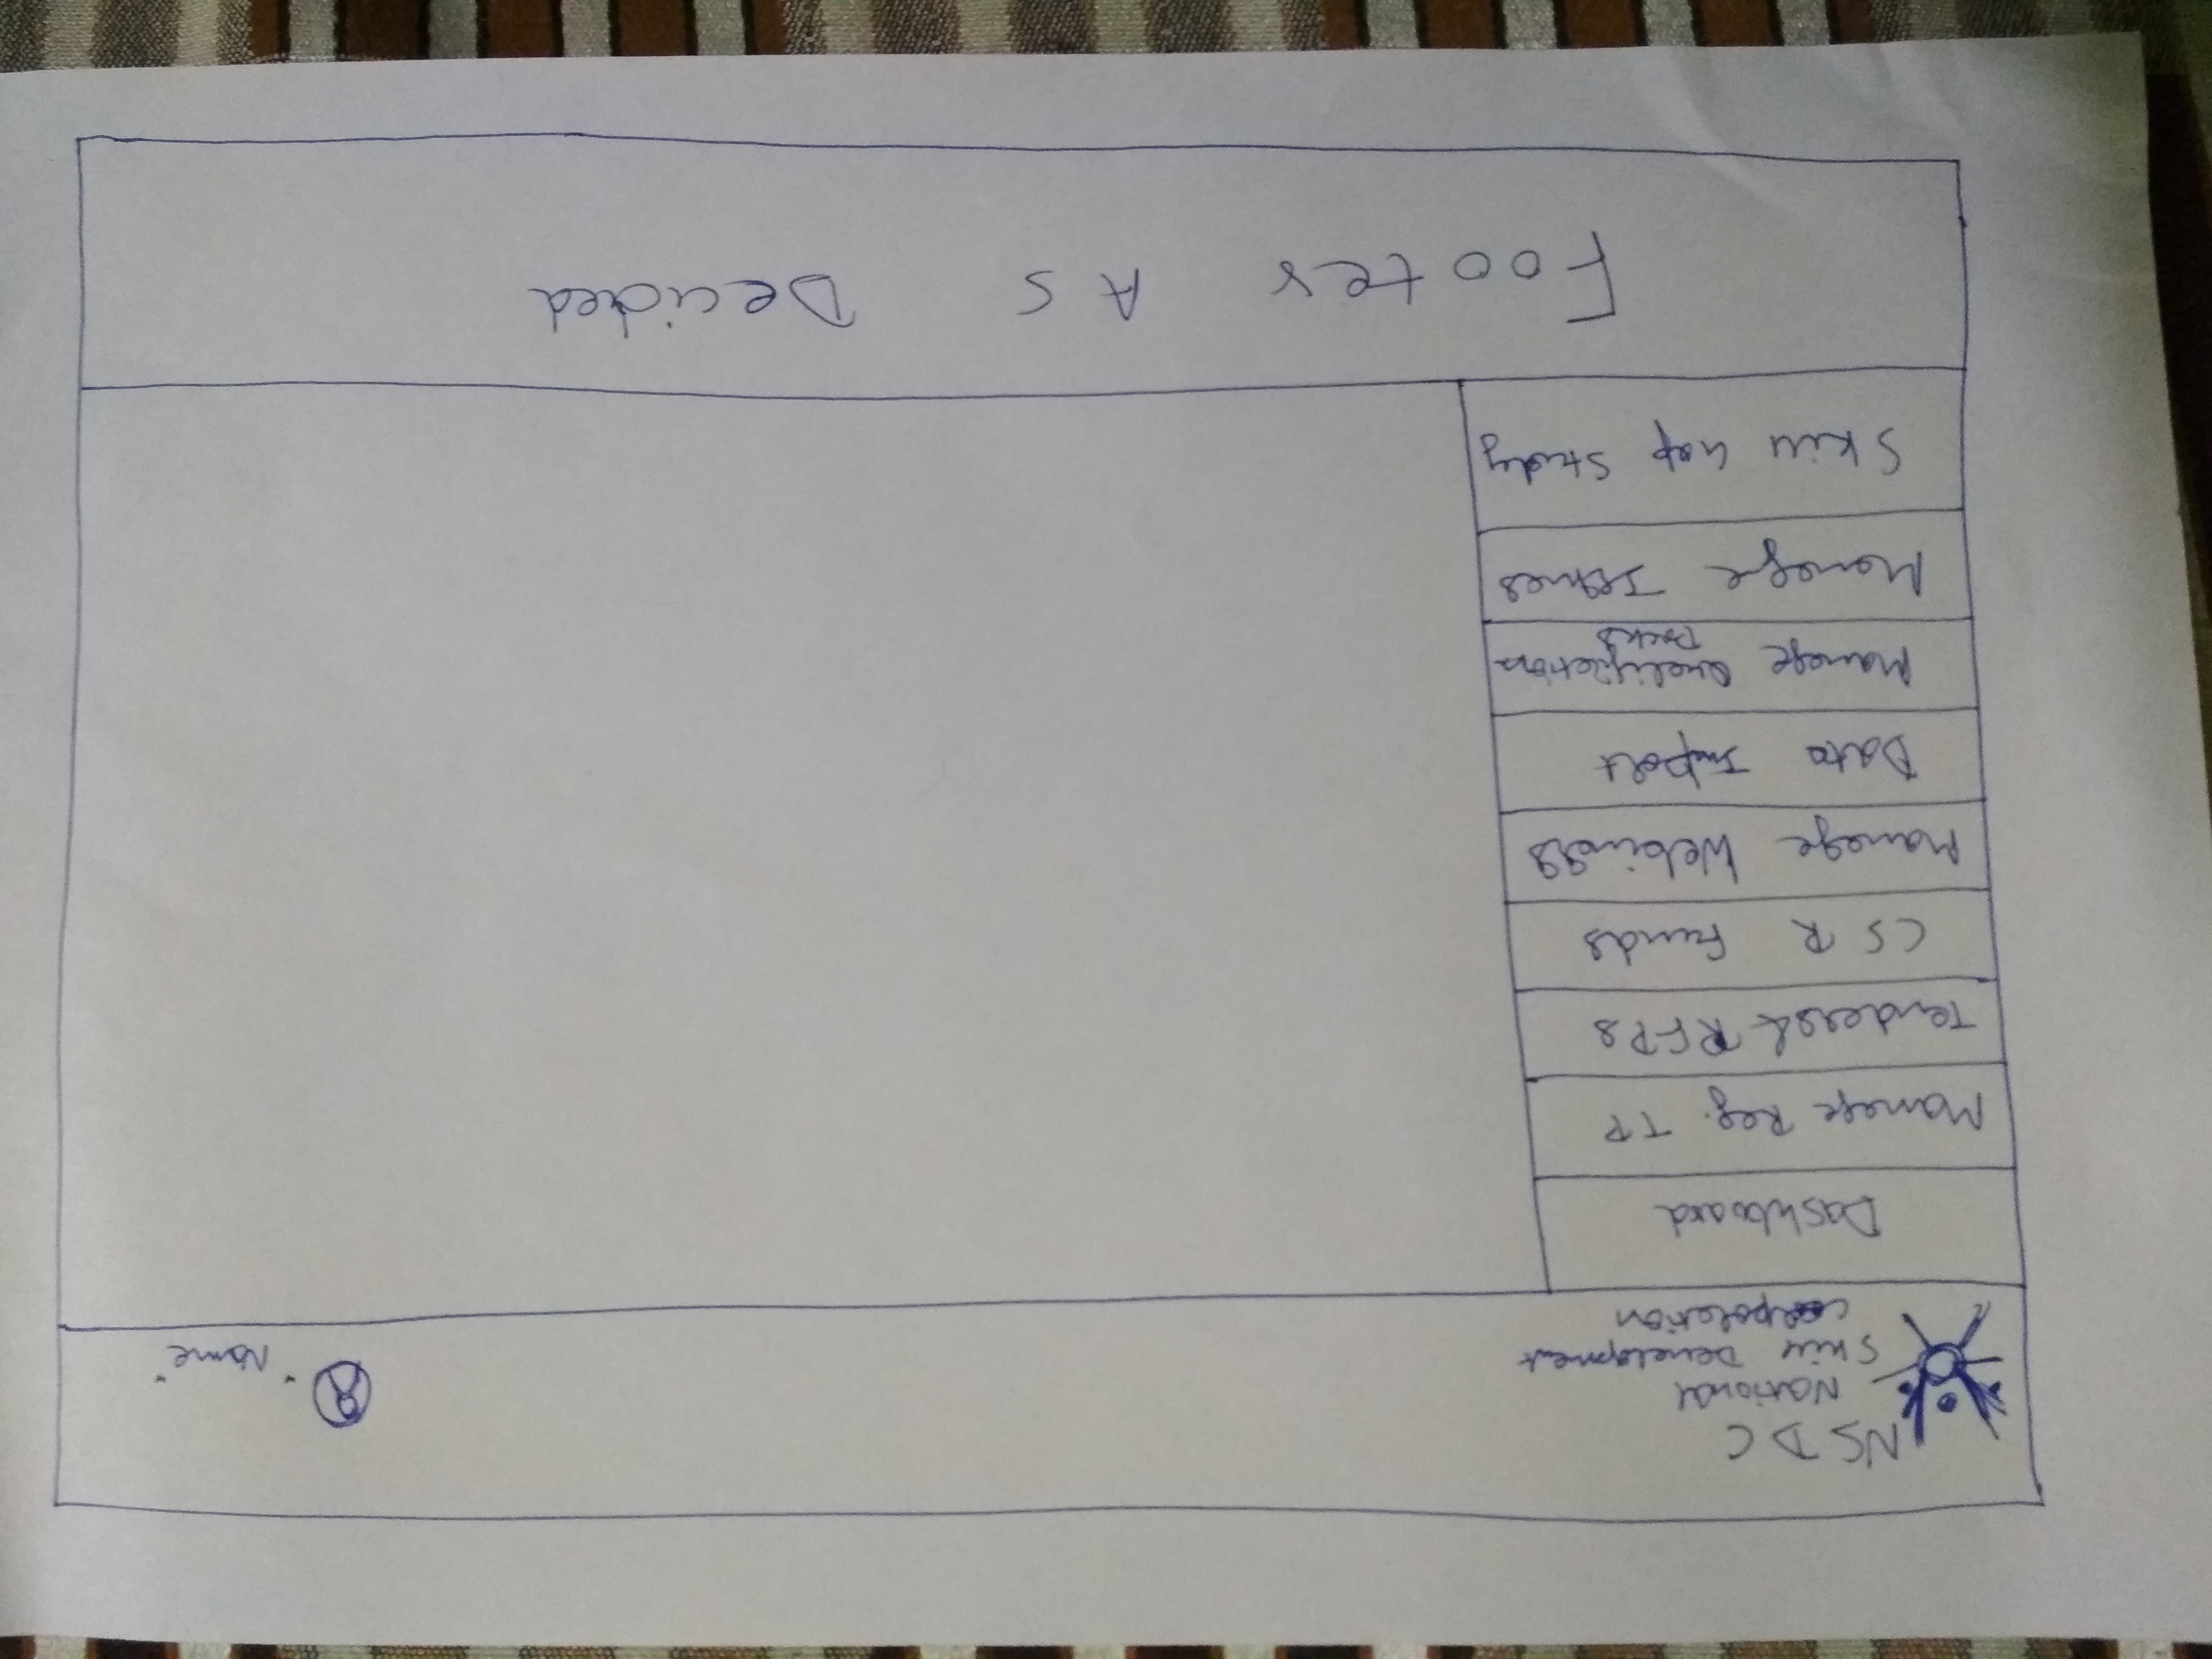 NSDC
National
Skill Development
Corporation
"Name"
Dashboard
Manage Reg. TP
Tenders & RFPs
CSR Funds
Manage Webinars
Data Import
Manage Qualification
Packs
Manage Issues
Skill Gap Study
Footer As Decided